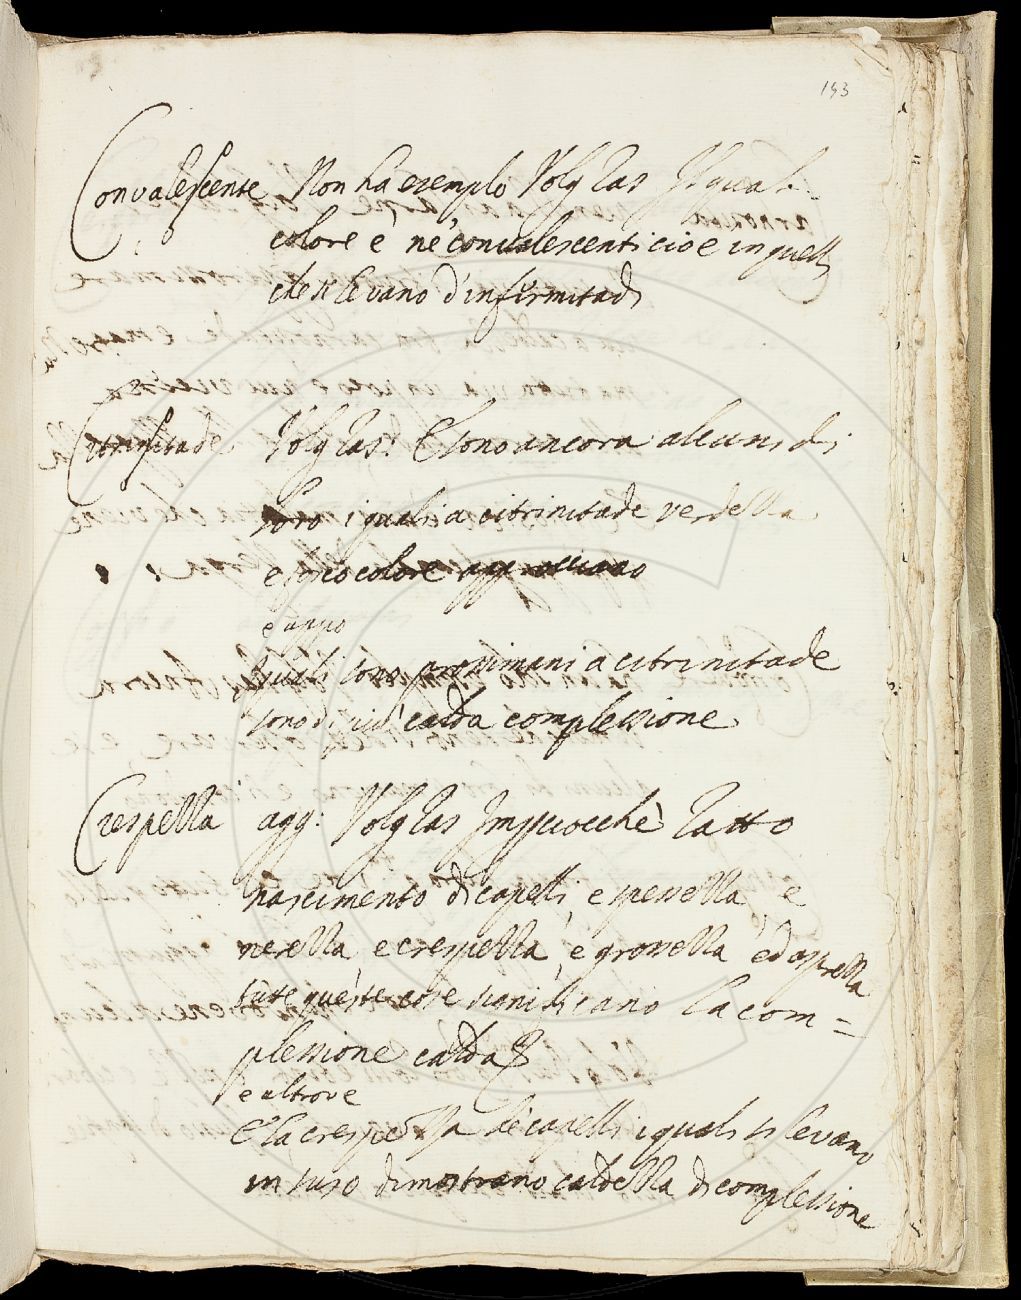 193
Convalescente Non ha esempio Volg Ras Il qual
colore è ne' convalescenti cioè in quelli
che si levano d'infirmitadi
Citrinitade Volg Ras: E sono ancora alcuni di
loro i quali a citrinitade verdella
e colore
e appo
quali sono prossimani a citrinitade
sono di più calda complessione
Crespella agg: Volg Ras Impciocchè ratto
nascimento di capelli, e spessella, e
nerella, e crespella, e grossella, ed asprella
tute queste cose significano la com=
plessione calda
e altrove
E la crespella de' capelli i quali si levano
in suso dimostrano caldella di complessione